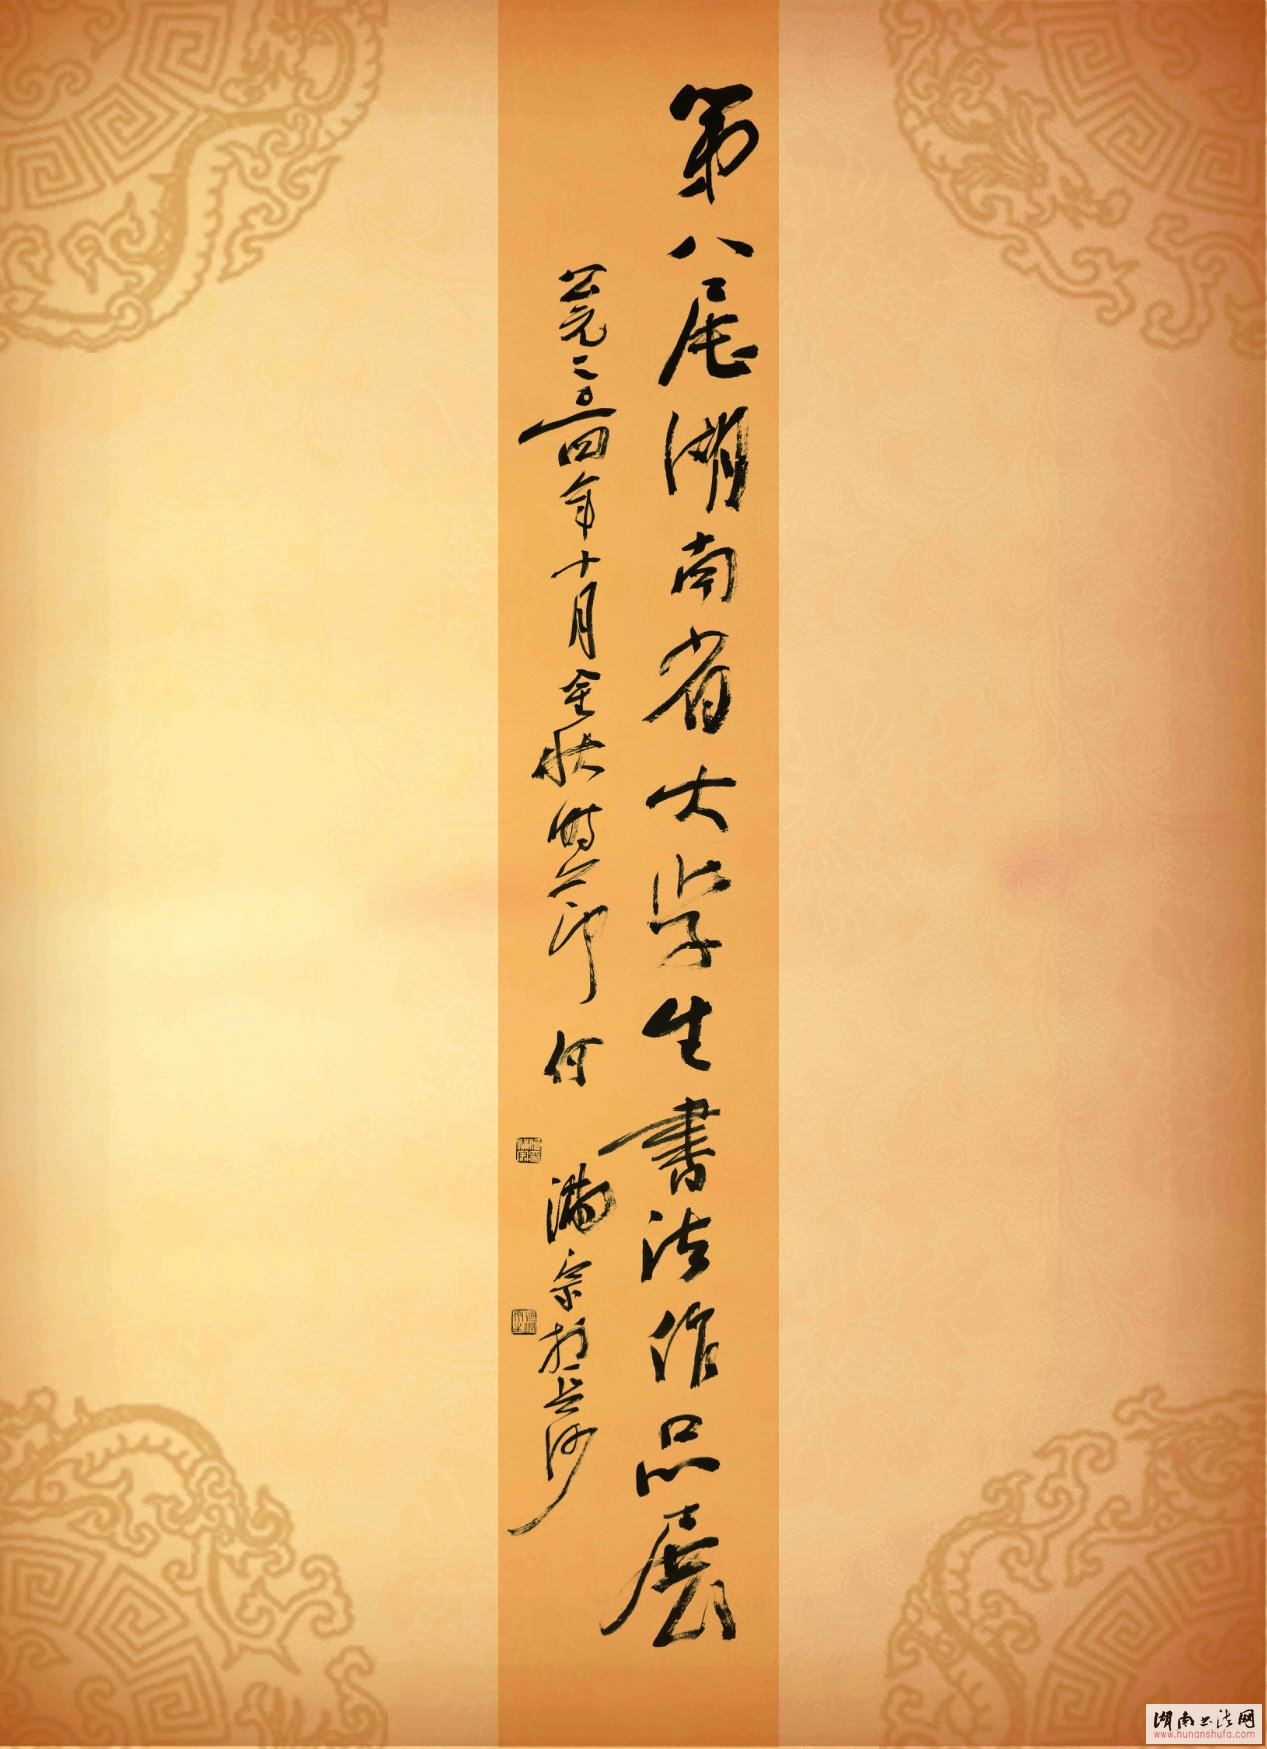 第八届湖南省大学生書法作品展
公元二〇一四年十月金秋時节 何
满宗於长沙
湖南书法网
www.hunanshufa.com